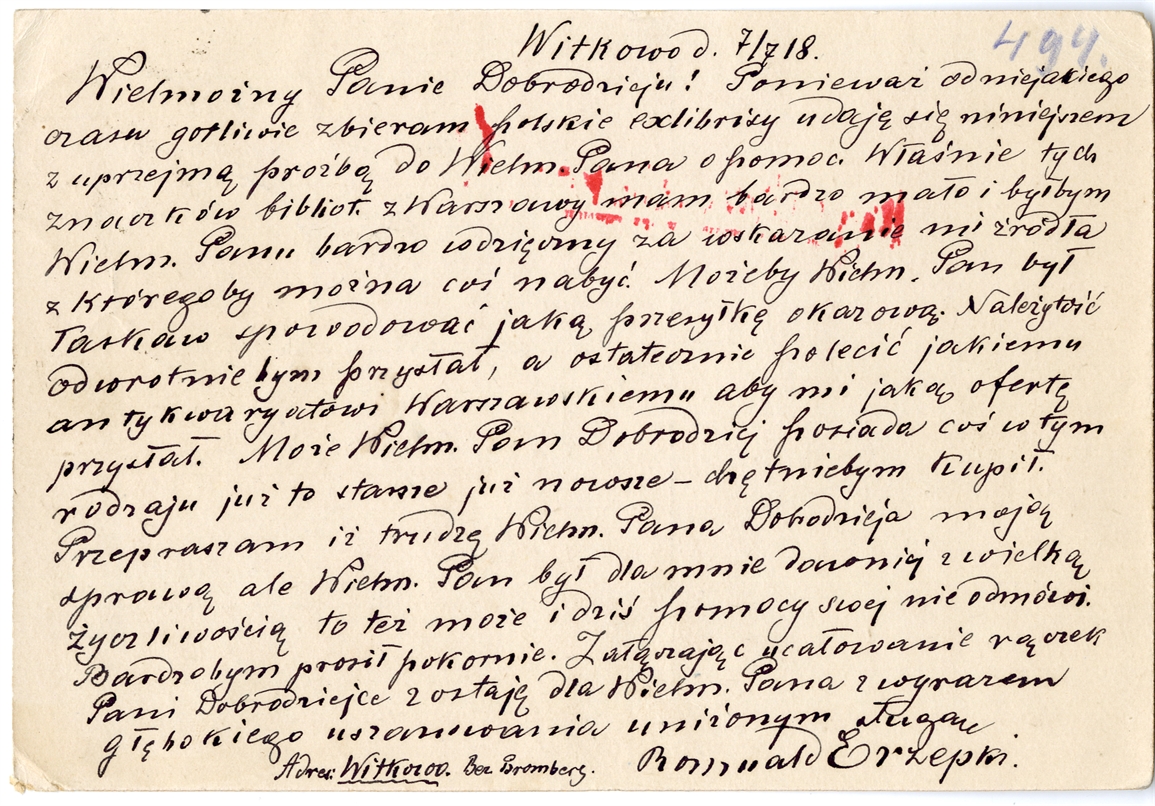 Witkowo d. 7/7 18.
494.
Wielmożny Panie Dobrodzieju! Ponieważ od niejakiego
czasu gorliwie zbieram polskie exlibrisy udaję się niniejszem
z uprzejmą prośbą do Wielm. Pana o pomoc. Właśnie tych
znaczków bibliot. z Warszawy mam bardzo mało i byłbym
Wielm. Panu bardzo wdzięczny za wskazanie mi źródła
z któregoby można coś nabyć. Możeby Wielm. Pan był
łaskaw spowodować jaką przesyłkę okazową. Należytość
odwrotnie bym przysłał, a ostatecznie polecić jakiemu
antykwaryatowi Warszawskiemu aby mi jaką ofertę
przysłał. Może Wielm. Pan Dobrodziej posiada coś w tym
rodzaju już to starsze już nowsze – chętniebym kupił.
Przepraszam iż trudzę Wielm. Pana Dobrodzieja moją
sprawą ale Wielm. Pan był dla mnie dawniej z wielką
życzliwością to też może i dziś pomocy swej nie odmówi.
Bardzobym prosił pokornie. Załączając ucałowanie rączek
Pani Dobrodziejce zostaję dla Wielm. Pana z wyrazem
głębokiego uszanowania uniżonym sługą
Romuald Erzepki.
Adres: Witkowo. Bez. Bromberg.